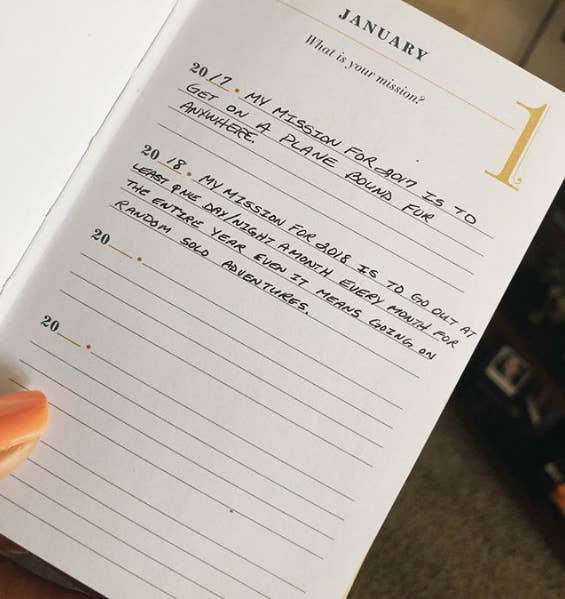 JANUARY
What is your mission?
1
2017. MY MISSION FOR 2017 IS TO
GET ON A PLANE BOUND FOR
ANYWHERE.
2018. MY MISSION FOR 2018 IS TO GO OUT AT
LEAST ONE DAY/NIGHT A MONTH EVERY MONTH FOR
THE ENTIRE YEAR EVEN IT MEANS GOING ON
RANDOM SOLO ADVENTURES.
20__.
20__.